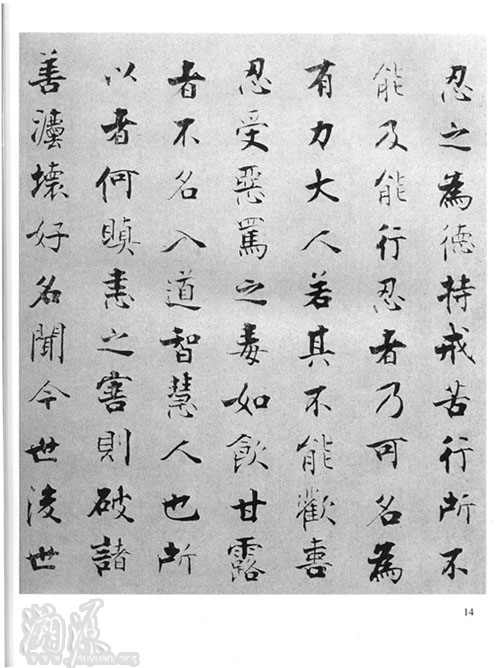 忍之為德持戒苦行所不
能及能行忍者乃可名為
有力大人若其不能歡喜
忍受惡罵之毒如飲甘露
者不名入道智慧人也所
以者何瞋恚之害則破諸
善灋壞好名聞今世後世
14
溯源